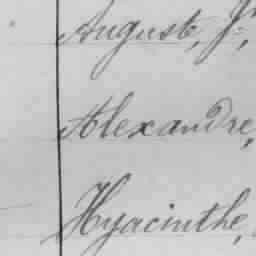 Auguste, Jn,
Alexandre,
Hyacinthe,